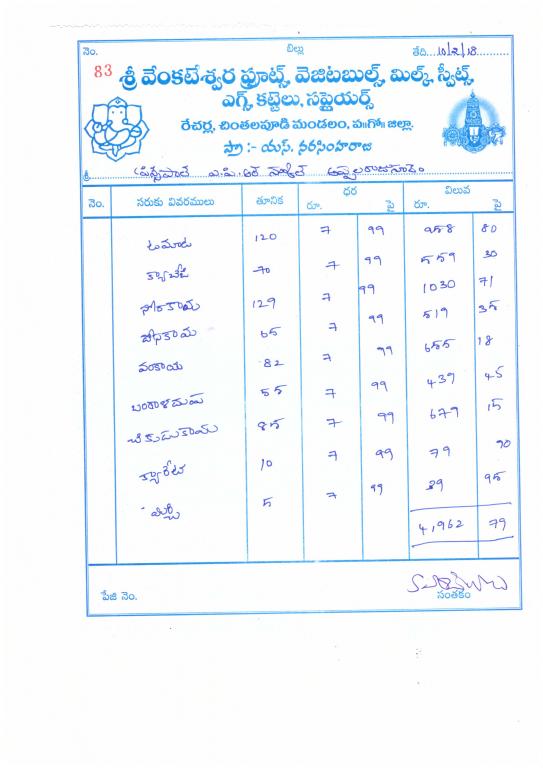 నెం. బిల్లు తేది...10/2/18
83 శ్రీ వేంకటేశ్వర ఫ్రూట్స్, వెజిటబుల్స్, మిల్క్, స్వీట్స్,
ఎగ్స్, కట్టెలు, సప్లైయర్స్
రేచర్ల, చింతలపూడి మండలం, ప॥గో॥ జిల్లా.
ప్రొ :- యస్. నరసింహరాజు
శ్రీ ప్రిన్సిపాల్ ఎ.పి.ఆర్.
నెం. సరుకు వివరములు తూనిక ధర విలువ
రూ. పై రూ. పై
టమాటా 120 7 99 958 80
క్యాబేజి 70 7 99 559 30
సోరకాయ 129 7 99 1030 71
65 7 99 519 35
వంకాయ 82 7 99 655 18
బంగాళదుంప 55 7 99 439 45
చికుడుకాయ 85 7 99 679 15
క్యారెట్ 10 7 99 79 90
మిర్చి 5 7 99 39 95
4,962 79
పేజి నెం. సంతకం